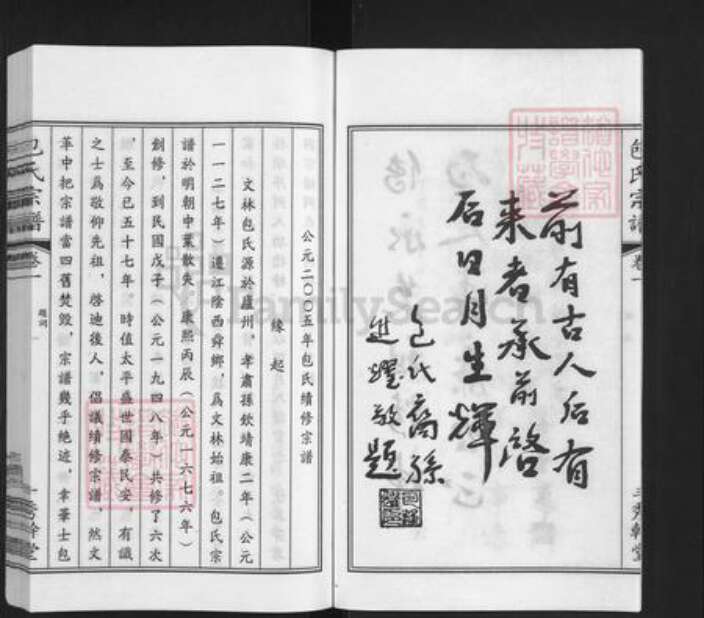 包氏宗譜
卷一
秀幹堂
前有古人后有
来者承前啓
后日月生輝
包氏裔孫
進躍敬題
公元二〇〇五年包氏續修宗譜
緣起
文林包氏源於廬州，孝肅孫欽靖康二年（公元
一一二七年）遷江陰西舜鄉，爲文林始祖。包氏宗
譜於明朝中葉散失，康熙丙辰（公元一六七六年）
創修，到民國戊子（公元一九四八年）共修了六次
，至今已五十七年。時值太平盛世國泰民安，有識
之士爲敬仰先祖，啓迪後人，倡議續修宗譜，然文
革中把宗譜當四舊焚毀，宗譜幾乎绝迹，幸華士包
包氏宗譜
卷一
題詞
秀幹堂
FamilySearch